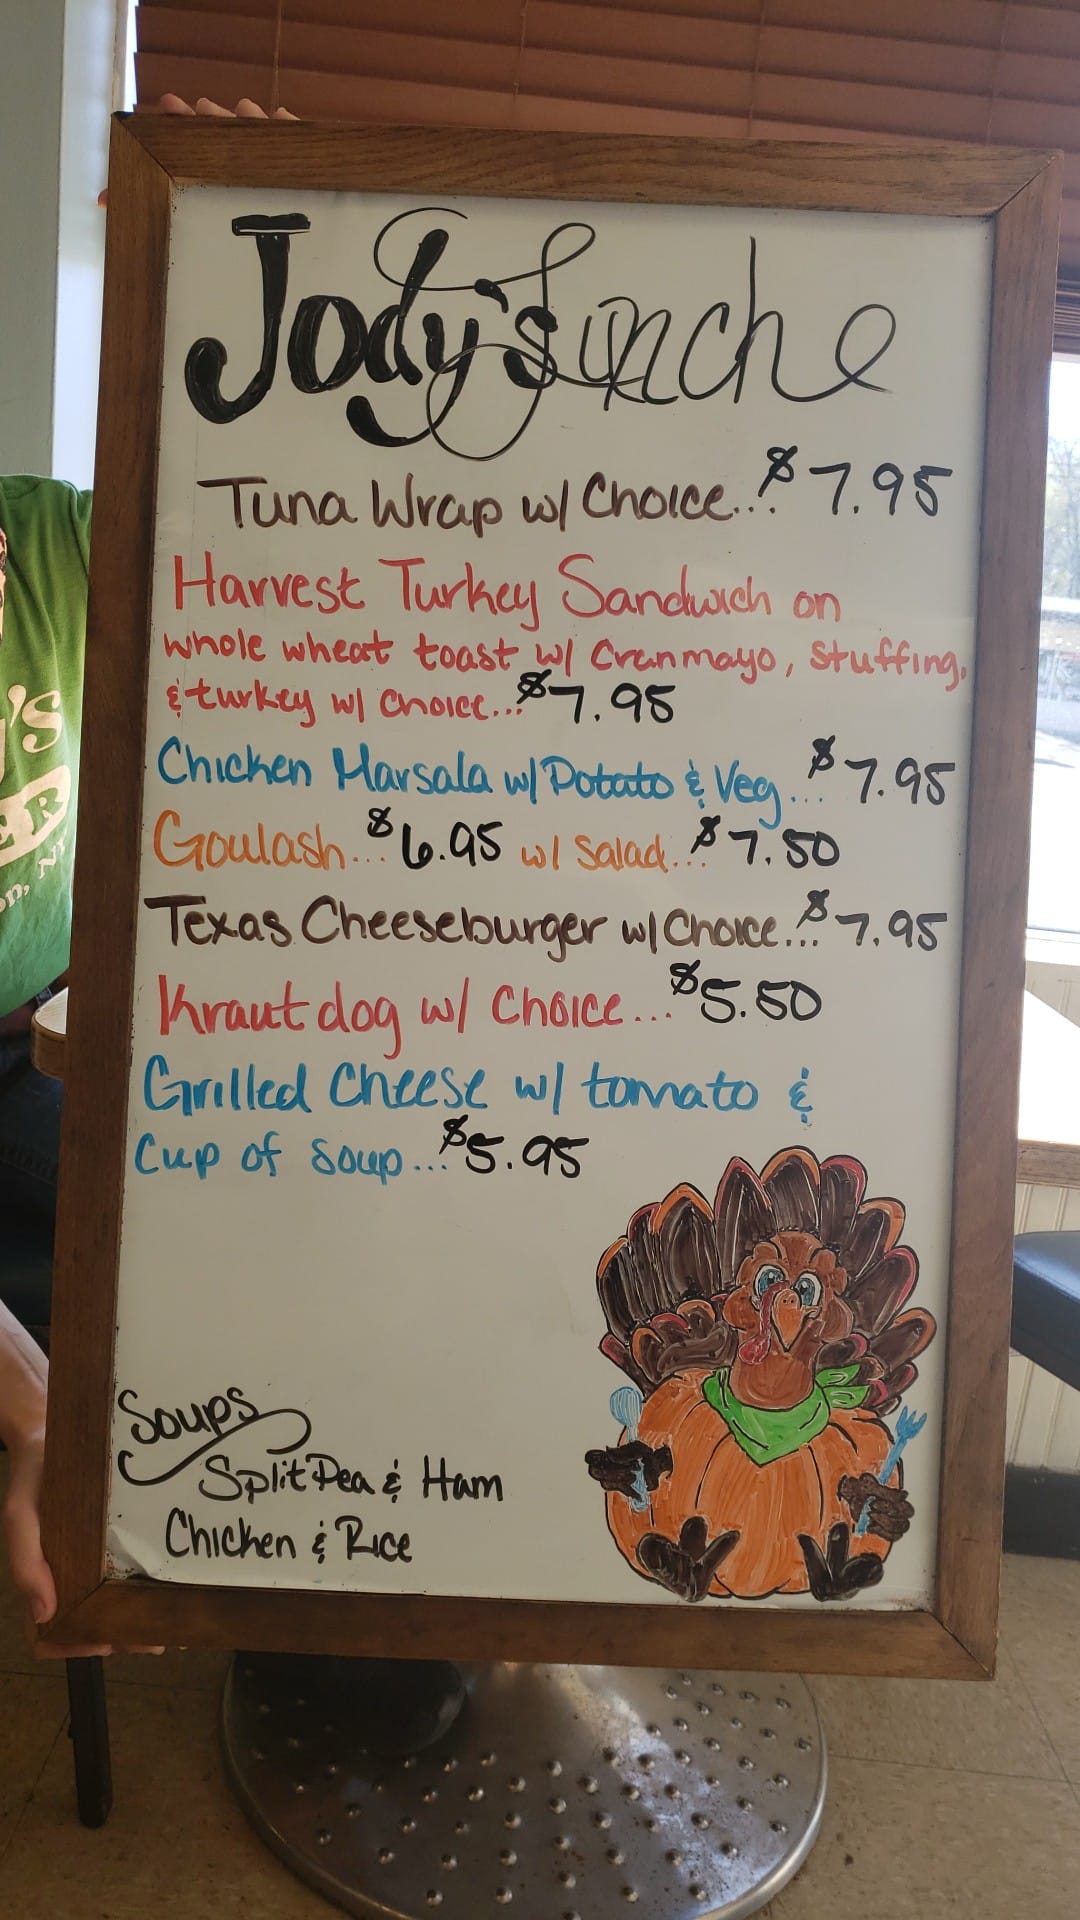 Jody's Lunch
Tuna Wrap w/ Choice... $7.95
Harvest Turkey Sandwich on
whole wheat toast w/ Cranmayo, Stuffing,
& turkey w/ choice... $7.95
Chicken Marsala w/ Potato & Veg... $7.95
Goulash... $6.95 w/ Salad... $7.50
Texas Cheeseburger w/ Choice... $7.95
Kraut dog w/ Choice... $5.50
Grilled Cheese w/ tomato &
cup of soup... $5.95
Soups
Split Pea & Ham
Chicken & Rice
'S
ER
on, N